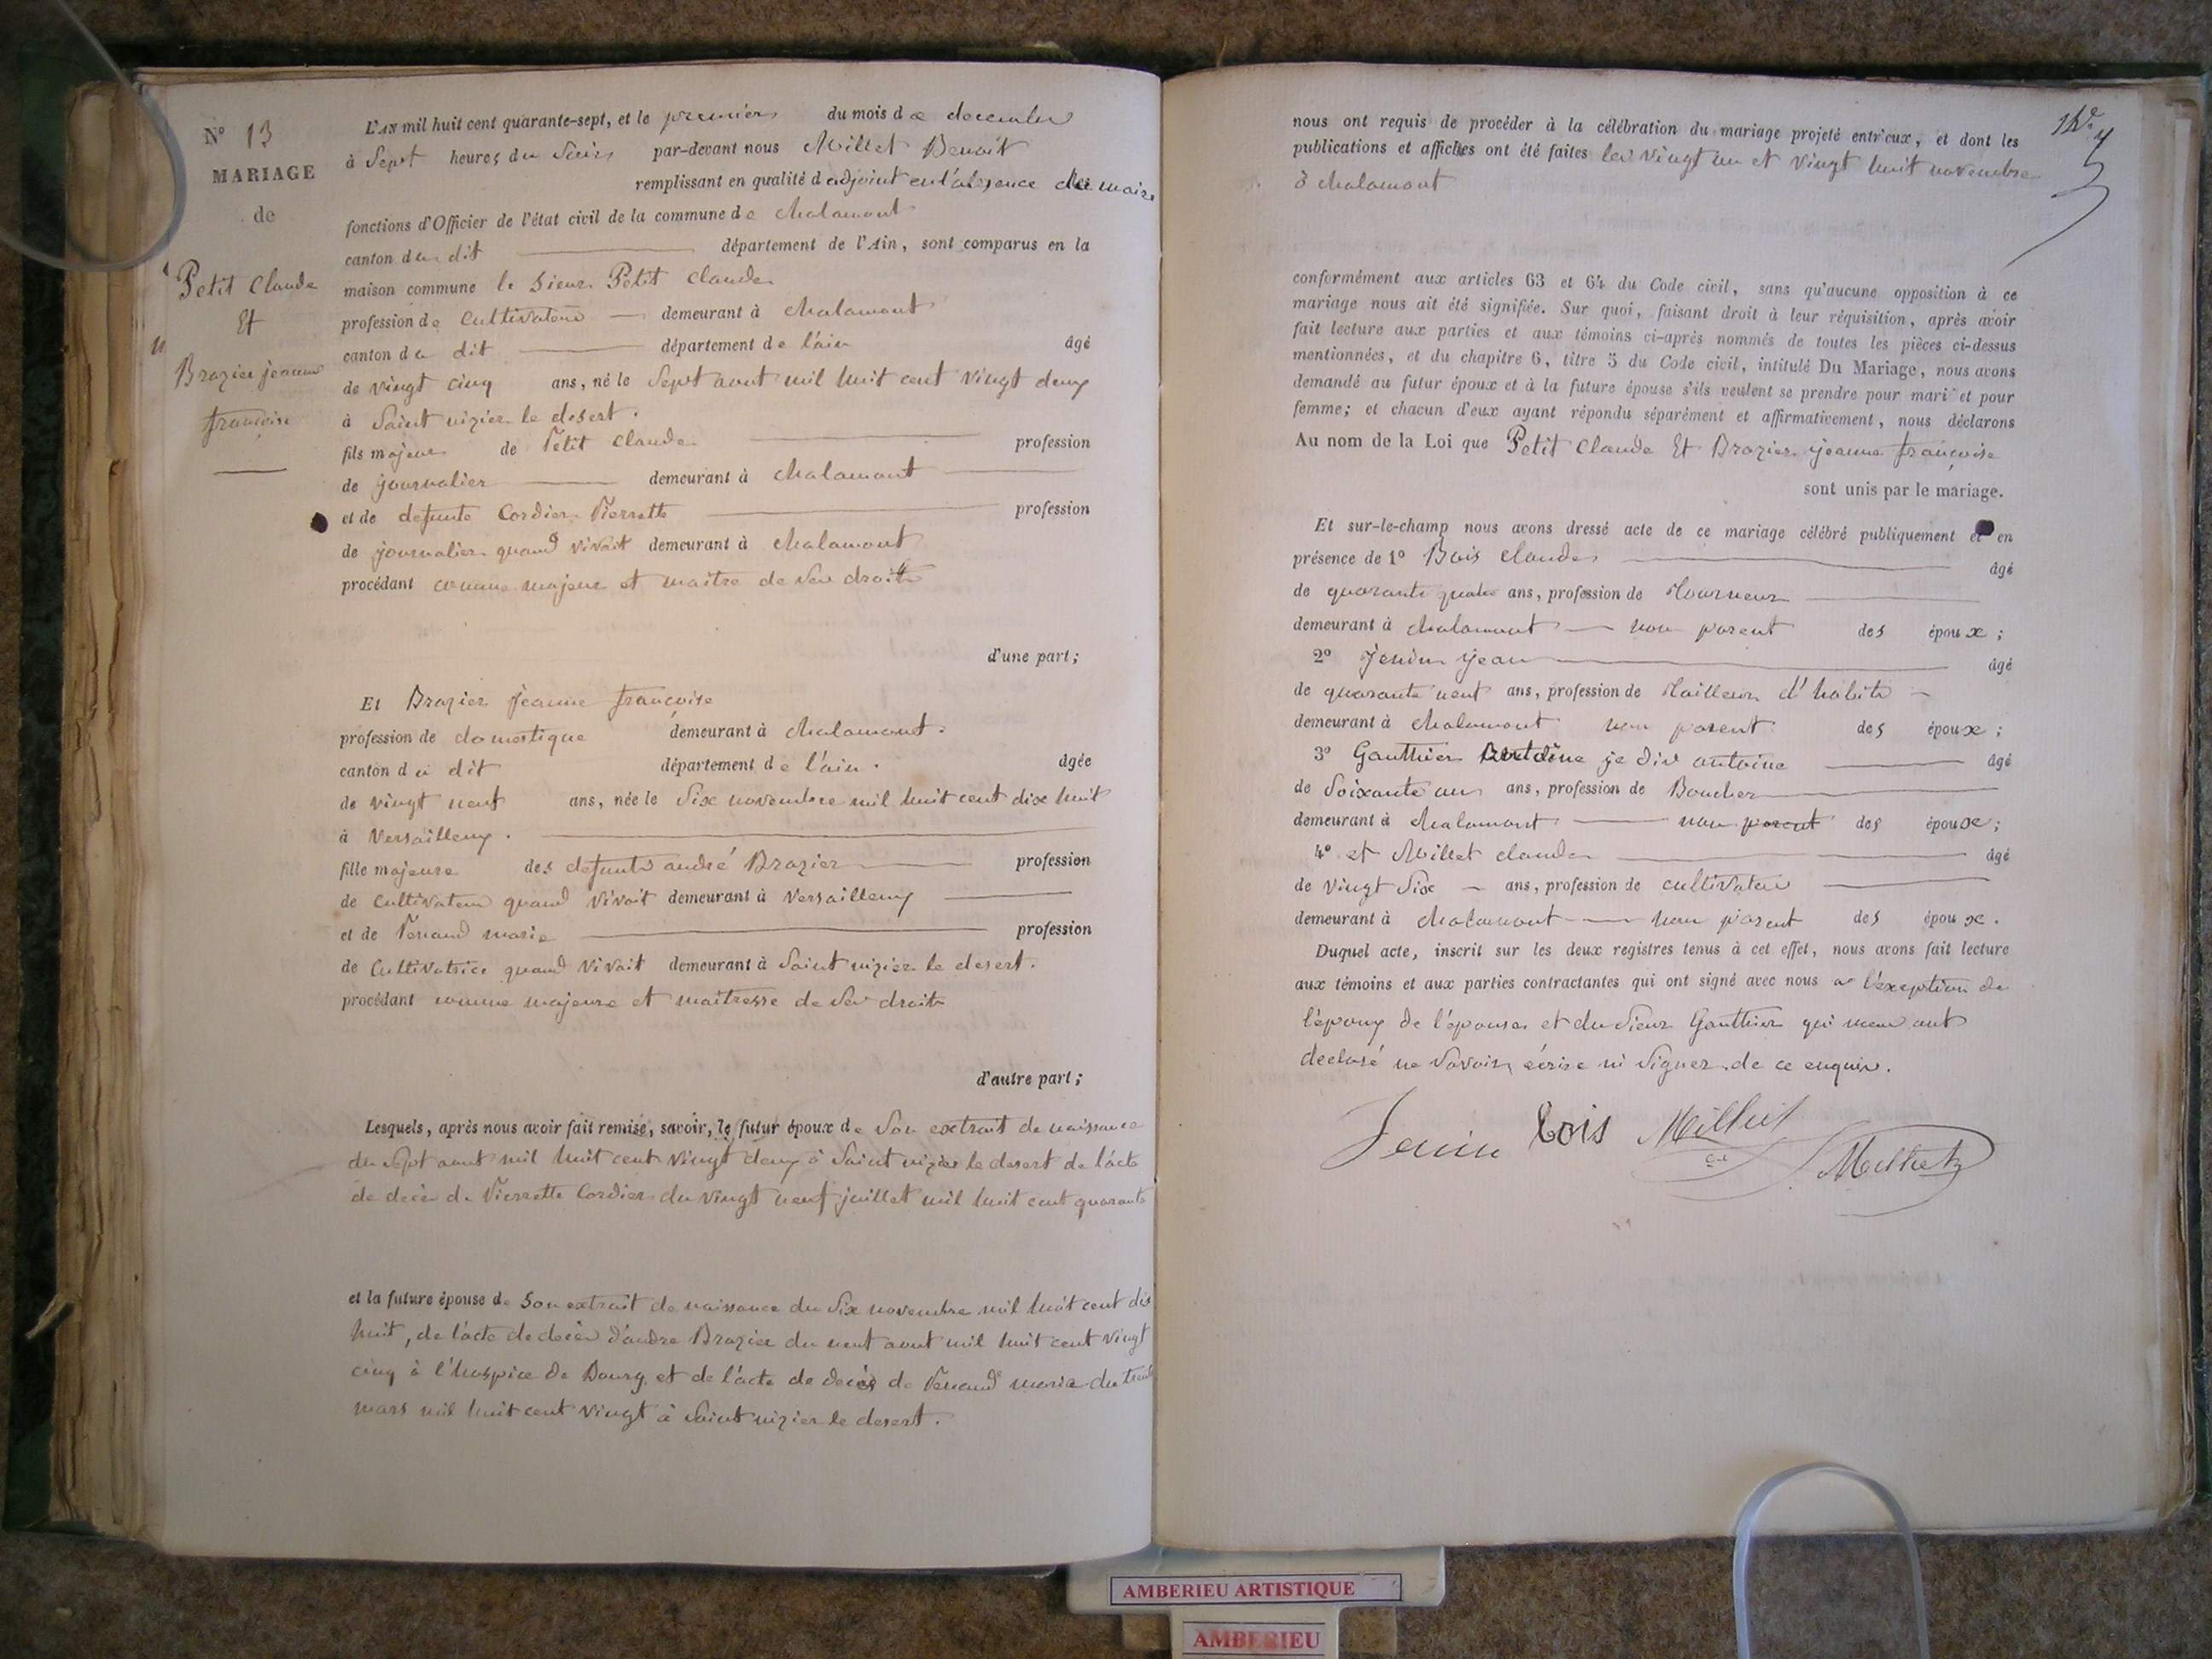 N° 13
MARIAGE
de
Petit Claude
Et
Brazier jeanne
françoise
L'AN mil huit cent quarante-sept, et le premier du mois de decembre
à Sept heures du Soir par-devant nous Millet Benoit
remplissant en qualité d'adjoint en l'absence du maire
fonctions d'Officier de l'état civil de la commune de chalamont
canton du dit département de l'Ain, sont comparus en la
maison commune le Sieur Petit Claude
profession de Cultivateur demeurant à chalamont
canton du dit département de l'ain âgé
de vingt cinq ans, né le Sept aout mil huit cent vingt deux
à Saint nizier le desert.
fils majeur de Petit Claude profession
de journalier demeurant à chalamont
et de defunte Cordier Pierrette profession
de journalier quand vivait demeurant à chalamont
procédant comme majeur et maitre de ses droits
d'une part;
Et Brazier Jeanne françoise
profession de domestique demeurant à chalamont.
canton du dit département de l'ain. âgée
de vingt neuf ans, née le Six novembre mil huit cent dix huit
à Versailleux.
fille majeure des defunts andré Brazier profession
de Cultivateur quand vivait demeurant à Versailleux
et de marie profession
de Cultivatrice quand vivait demeurant à Saint nizier le desert.
procédant comme majeure et maitresse de ses droits
d'autre part;
Lesquels, après nous avoir fait remise, savoir, le futur époux de Son extrait de naissance
du Sept aout mil huit cent vingt deux à Saint nizier le desert de l'acte
de decès de Pierrette Cordier du vingt neuf juillet mil huit cent quarante
et la future épouse de Son extrait de naissance du Six novembre mil huit cent dix
huit, de l'acte de decès d'andre Brazier du neuf aout mil huit cent vingt
cinq à l'hospice de Bourg et de l'acte de decès de marie du trente
mars mil huit cent vingt à Saint nizier le desert.
nous ont requis de procéder à la célébration du mariage projeté entr'eux, et dont les
publications et affiches ont été faites les vingt un et vingt huit novembre
à chalamont
conformément aux articles 63 et 64 du Code civil, sans qu'aucune opposition à ce
mariage nous ait été signifiée. Sur quoi, faisant droit à leur réquisition, après avoir
fait lecture aux parties et aux témoins ci-après nommés de toutes les pièces ci-dessus
mentionnées, et du chapitre 6, titre 5 du Code civil, intitulé Du Mariage, nous avons
demandé au futur époux et à la future épouse s'ils veulent se prendre pour mari et pour
femme; et chacun d'eux ayant répondu séparément et affirmativement, nous déclarons
Au nom de la Loi que Petit Claude Et Brazier jeanne françoise
sont unis par le mariage.
Et sur-le-champ nous avons dressé acte de ce mariage célébré publiquement et en
présence de 1° Bois Claude âgé
de quarante quatre ans, profession de Tourneur
demeurant à chalamont non parent des époux;
2° Jenin Jean âgé
de quarante neuf ans, profession de Tailleur d'habits
demeurant à chalamont non parent des époux;
3° Gauthier je dis antoine âgé
de Soixante un ans, profession de Boucher
demeurant à chalamont non parent des époux;
4° et Millet Claude âgé
de vingt Six ans, profession de cultivateur
demeurant à chalamont non parent des époux.
Duquel acte, inscrit sur les deux registres tenus à cet effet, nous avons fait lecture
aux témoins et aux parties contractantes qui ont signé avec nous a l'exeption de
l'epoux de l'epouse et du Sieur Gauthier qui nous ont
declaré ne Savoir écrire ni Signer de ce enquis.
Jenin bois Milliet Milliet
AMBERIEU ARTISTIQUE
AMBERIEU